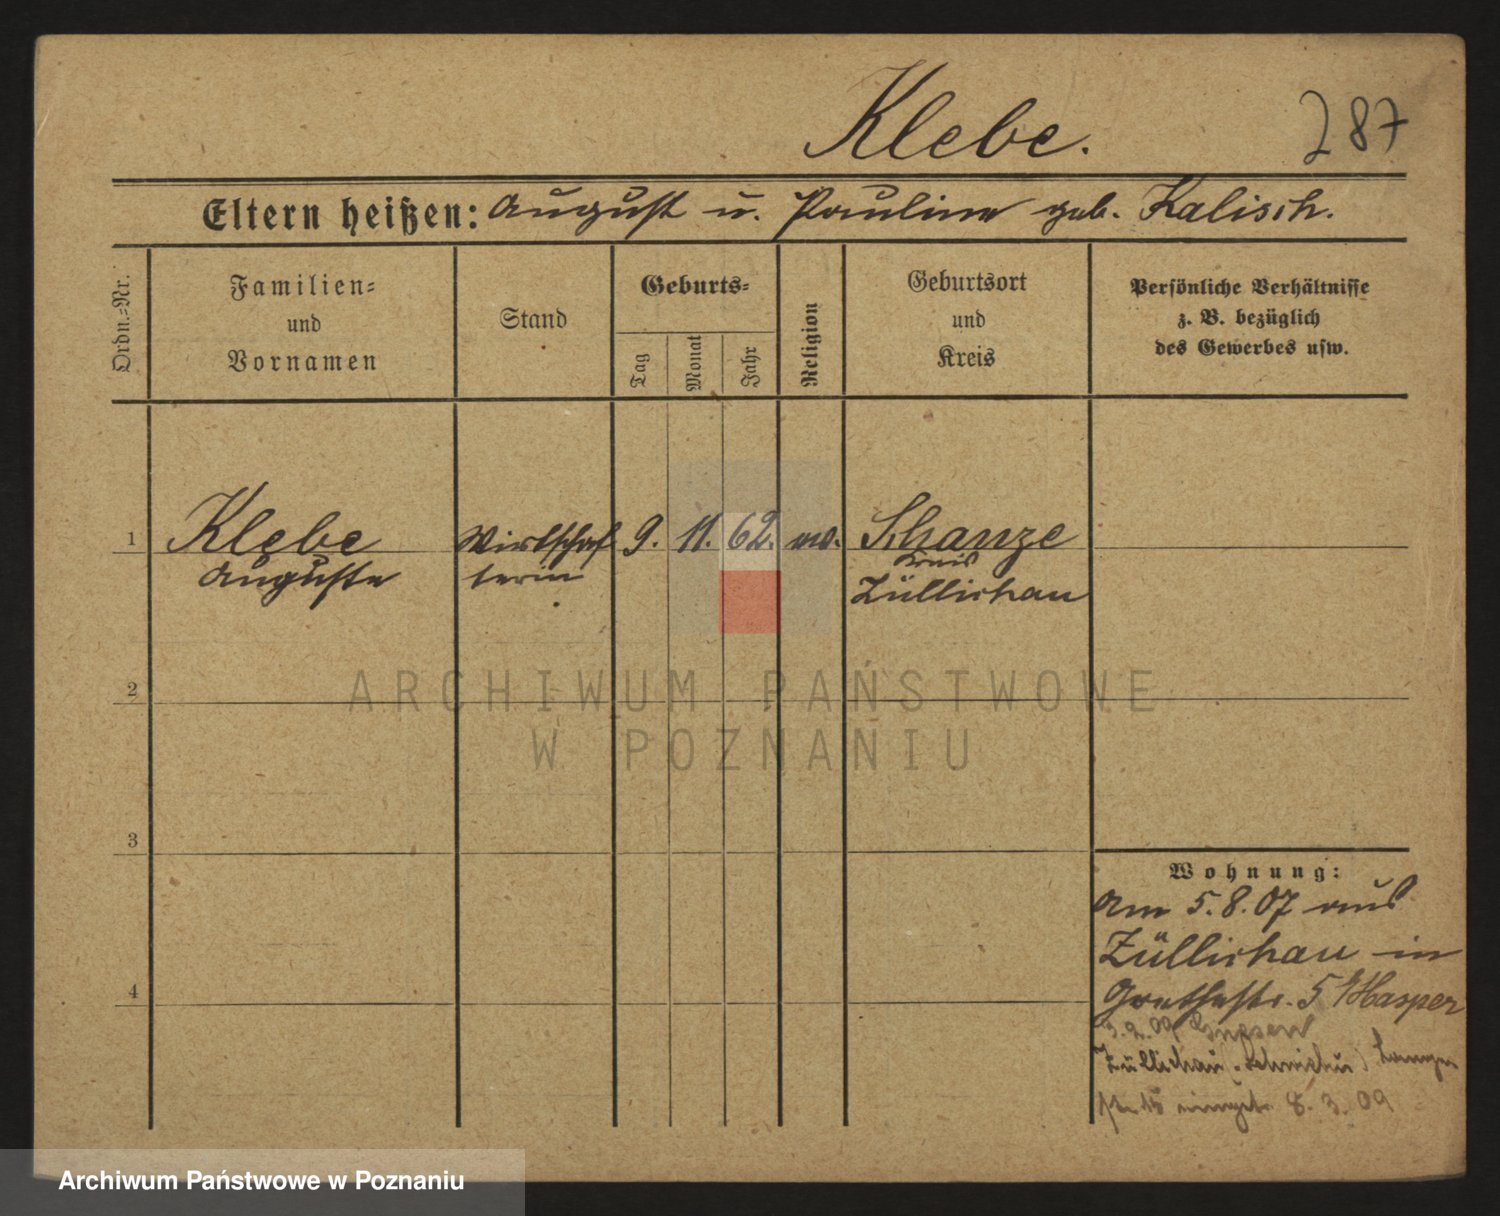 Klebe. 287
Eltern heißen: August u. Pauline geb. Kalisch.
Ordn.-Nr.
Familien-
und
Vornamen
Stand
Geburts-
Tag
Monat
Jahr
Religion
Geburtsort
und
Kreis
Persönliche Verhältnisse
z. B. bezüglich
des Gewerbes usw.
1 Klebe Wirtschaf 9. 11. 62. ev. Schanze
Auguste terin Kreis
Züllichau
2
3
4
Wohnung:
Am 5.8.07 aus
Züllichau in
Goethestr. 5 Hasper
3.2.09
Züllichau
8. 3. 09
ARCHIWUM PAŃSTWOWE
W POZNANIU
Archiwum Państwowe w Poznaniu